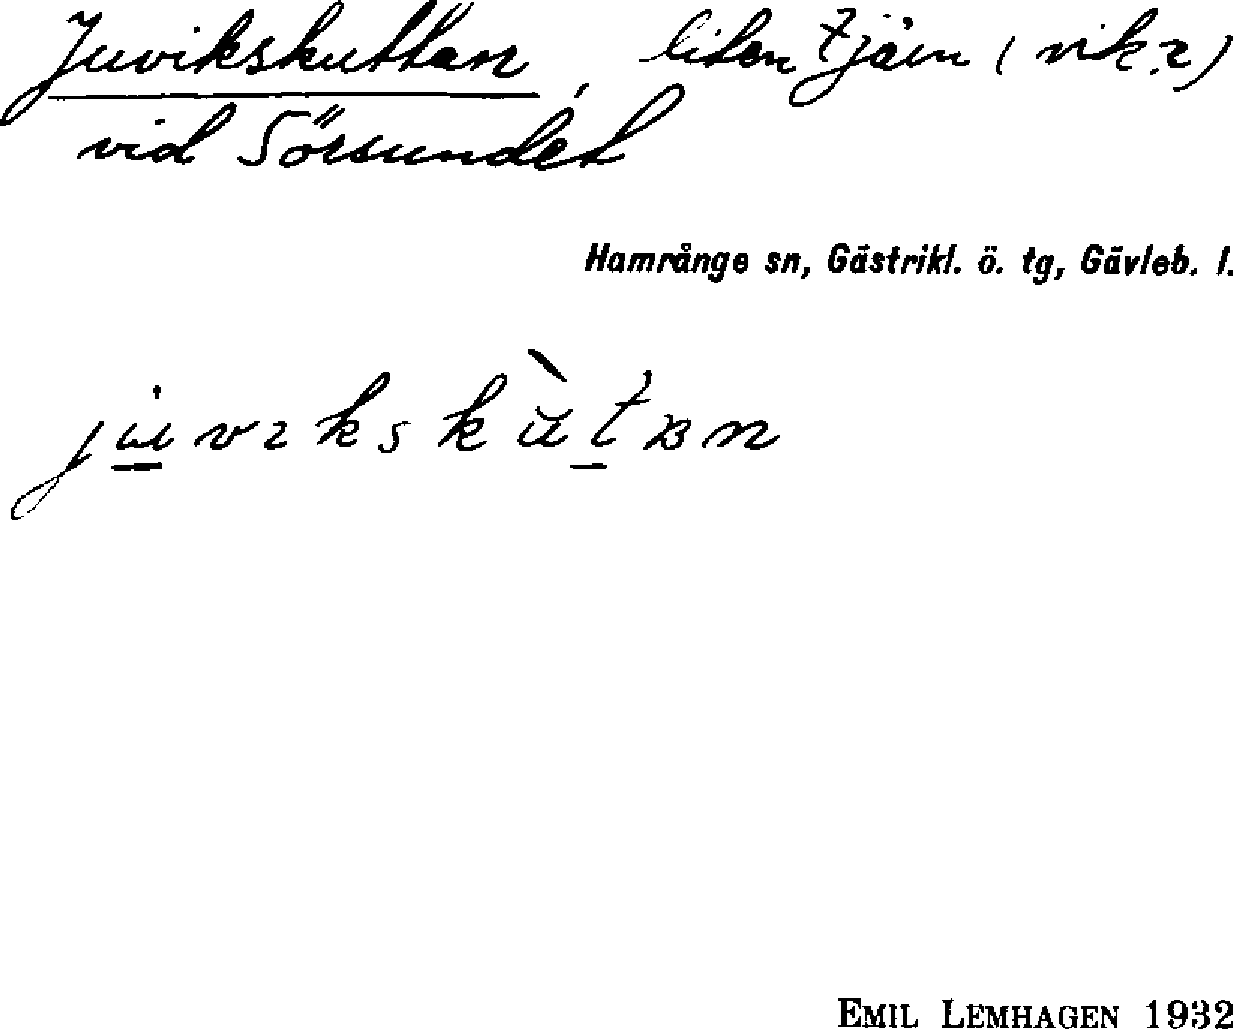 Juvikskuttan, liten tjärn (vik?)
vid Sörsundet
Hamrånge sn, Gästrikl. ö. tg, Gävleb. l.
EMIL LEMHAGEN 1932